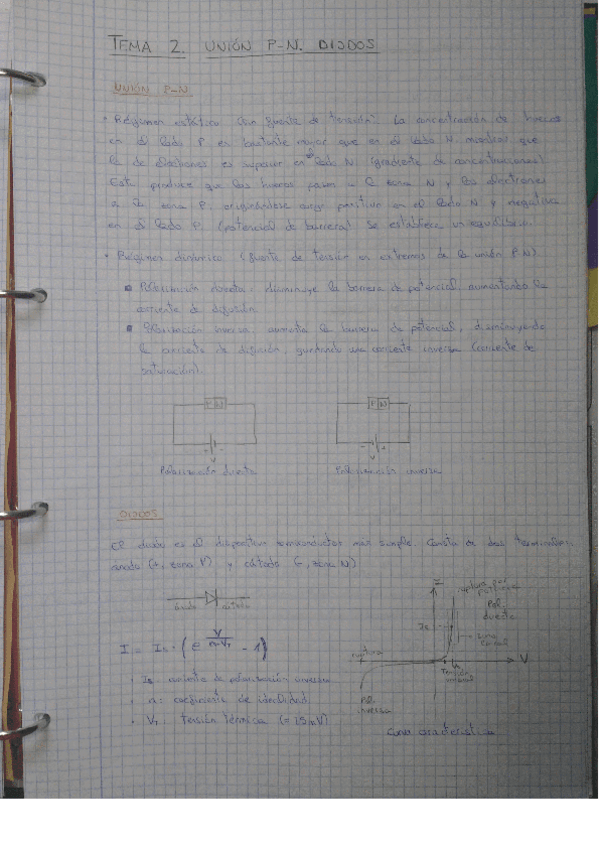 TEMA 2. UNIÓN P-N. DIODOS
UNIÓN P-N.
• Régimen estático (sin fuente de tensión). La concentración de huecos
en el lado P es bastante mayor que en el lado N, mientras que
la de electrones es superior en el lado N (gradiente de concentraciones).
Esto produce que los huecos pasen a la zona N y los electrones
a la zona P, originándose carga positiva en el lado N y negativa
en el lado P. (potencial de barrera) Se establece un equilibrio.
• Régimen dinámico (fuente de tensión en extremos de la unión P-N)
Polarización directa: disminuye la barrera de potencial, aumentando la
corriente de difusión.
Polarización inversa: aumenta la barrera de potencial, disminuyendo
la corriente de difusión, quedando una corriente inversa (corriente de
saturación).
P N
P N
+ -
V
- +
V
Polarización directa
Polarización inversa
DIODOS
El diodo es el dispositivo semiconductor más simple. Consta de dos terminales:
ánodo (+, zona P) y cátodo (-, zona N)
ánodo cátodo
I = Is · (e^(V/(n·VT)) - 1)
· Is: corriente de polarización inversa
· n: coeficiente de idealidad
· VT: tensión térmica (= 25 mV)
I
ruptura por
Pol.
directa
zona
ruptura
V
Tensión
umbral
Pol.
inversa
Curva característica